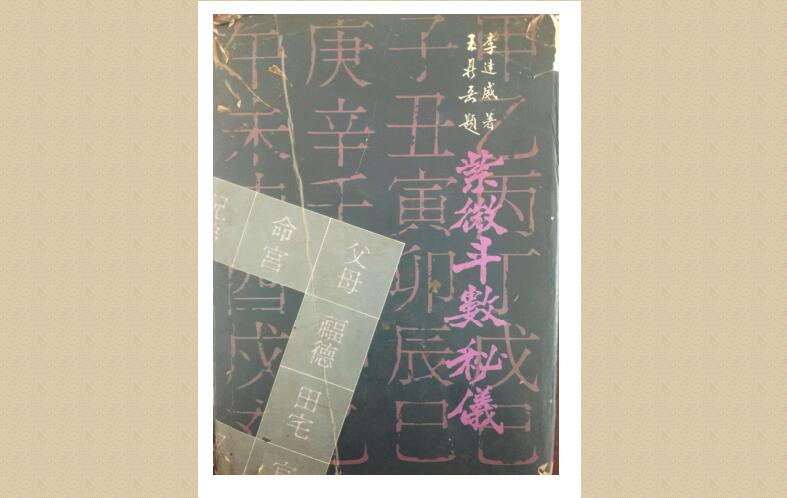 李達威著
王鼎題
紫微斗數秘儀
甲乙丙丁戊己
子丑寅卯辰巳
庚辛壬
午未
酉戌亥
父母
福德
田宅
命宮
兄弟